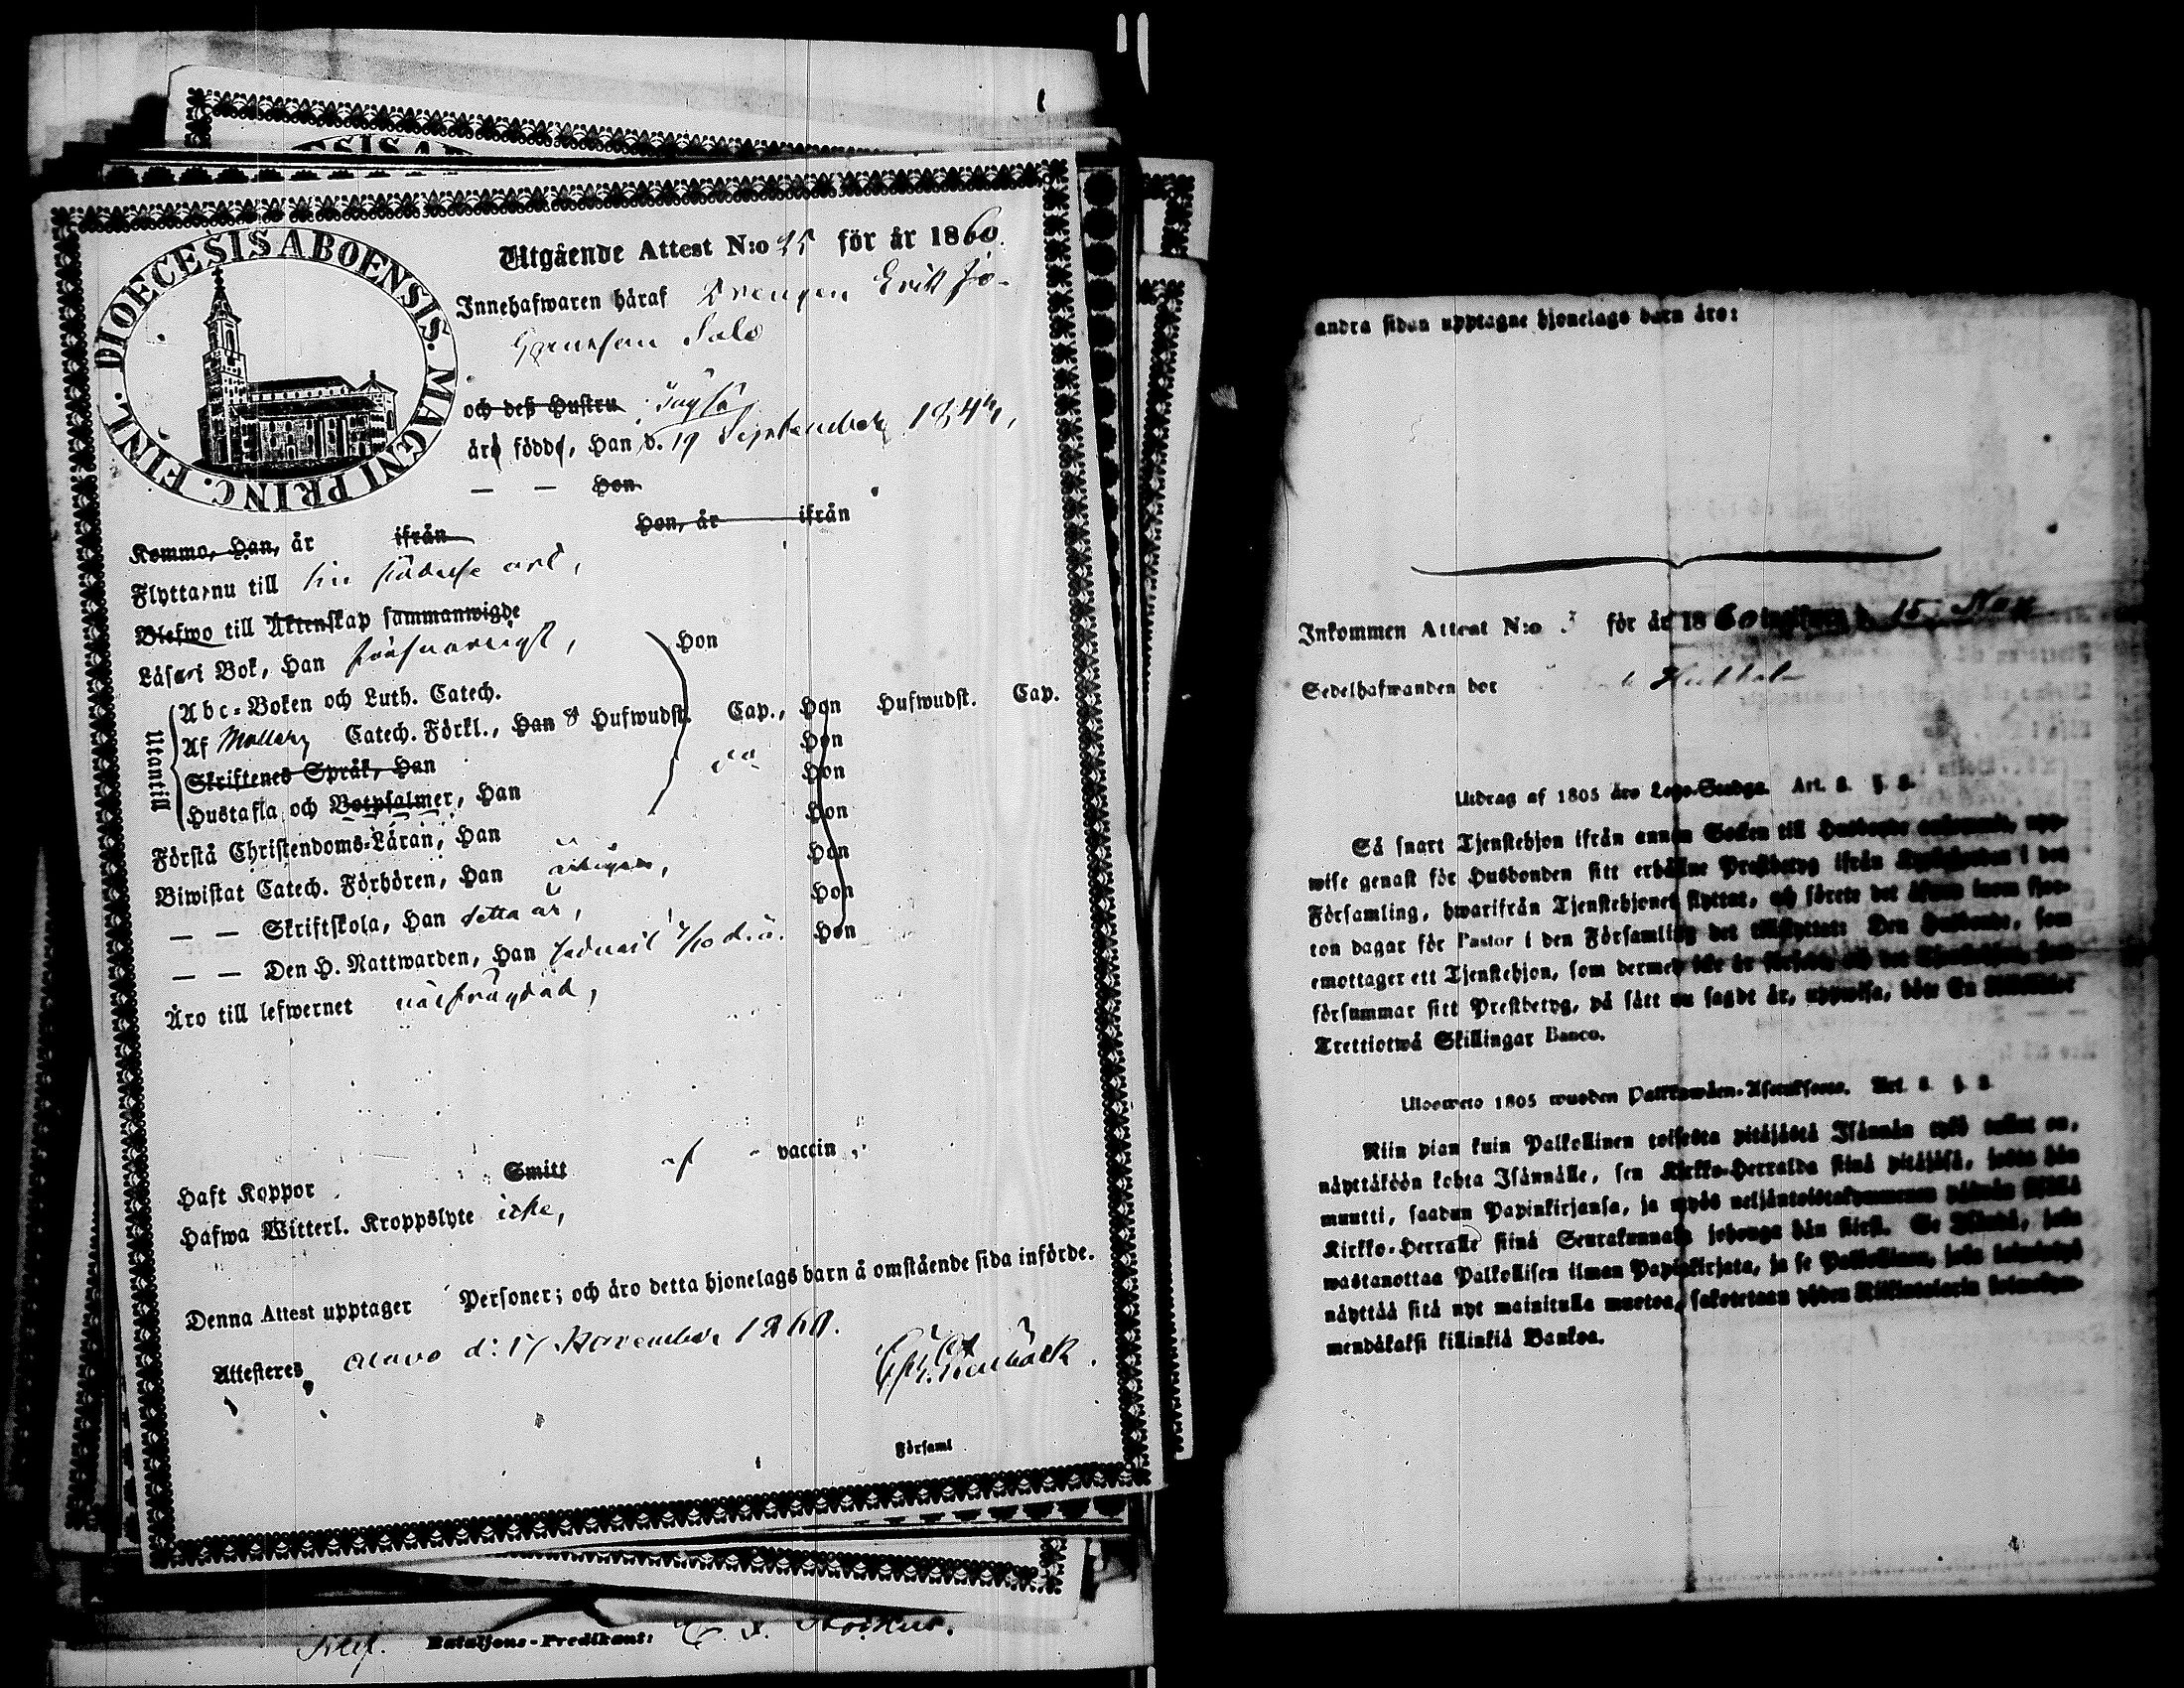 DIOECESIS ABOENSIS. MAGNI PRINC. FINL.
Utgående Attest N:o 25 för år 1860.
Innehafwaren häraf Drengen Erik Jo-
Salo
och deß Hustru
äro födde, Han d. 19 September 184
— — Hon
Kommo, Han, år ifrån Hon, år ifrån
Flyttar nu till sin födelse ort,
Blefwo till Äktenskap sammanwigde
Läsa i Bok, Han försvarligt, Hon
Utantill
Abc-Boken och Luth. Catech.
Af Catech. Förkl., Han 8 Hufwudst. Cap., Hon Hufwudst. Cap.
Skriftenes Språk, Han Hon
Hustafla och Botpsalmer, Han Hon
Förstå Christendoms-Läran, Han Hon
Biwistat Catech. Förhören, Han årligen, Hon
— — Skriftskola, Han detta år, Hon
— — Den H. Nattwarden, Han Hon
Äro till lefwernet
Haft Koppor Smitt af vaccin
Hafwa Witterl. Kroppslyte icke,
Denna Attest upptager Personer; och äro detta hjonelags barn å omstående sida införde.
Attesteres Alavo d: 17 November 1860.
Församl
Bataljons-Predikant:
andra sidan upptagne hjonelags barn äro:
Inkommen Attest N:o 3 för år 1860 d. 15 Nov
Sedelhafwanden bor
Utdrag af 1805 års Lego-Stadga. Art. 8. §. 8.
Så snart Tjenstehjon ifrån annan Socken till Husbonde ankommit, upp-
wise genast för Husbonden sitt erhållne Prestbetyg ifrån Kyrkoherden i den
Församling, hwarifrån Tjenstehjonet flyttat, och förete det äfwen inom fjor-
ton dagar för Pastor i den Församling det tillflyttat: Den Husbonde, som
emottager ett Tjenstehjon, som dermed icke är försedt, och det Tjenstehjon, som
försummar sitt Prestbetyg, på sätt nu sagdt är, uppwisa, böte En Riksdaler
Trettiotwå Skillingar Banco.
Ulosweto 1805 wuoden Palkkawäen-Asetuksesta. Art. 8. §. 8.
Niin pian kuin Palkollinen toisesta pitäjästä Isännän tykö tullut on,
näyttäköön kohta Isännälle, sen Kirkko-Herralda siinä pitäjäsä, josta hän
muutti, saadun Papinkirjansa, ja myös neljäntoistakymmenen päiwän sisällä
Kirkko-Herralle siinä Seurakunnasa johonga hän siirsi. Se Isäntä, joka
wastanottaa Palkollisen ilman Papinkirjata, ja se Palkollinen, joka laiminlyö
näyttää sitä nyt mainitulla muotoa, sakotetaan yhden Riikintalarin kolmekym-
mendäkaksi killinkiä Bankoa.